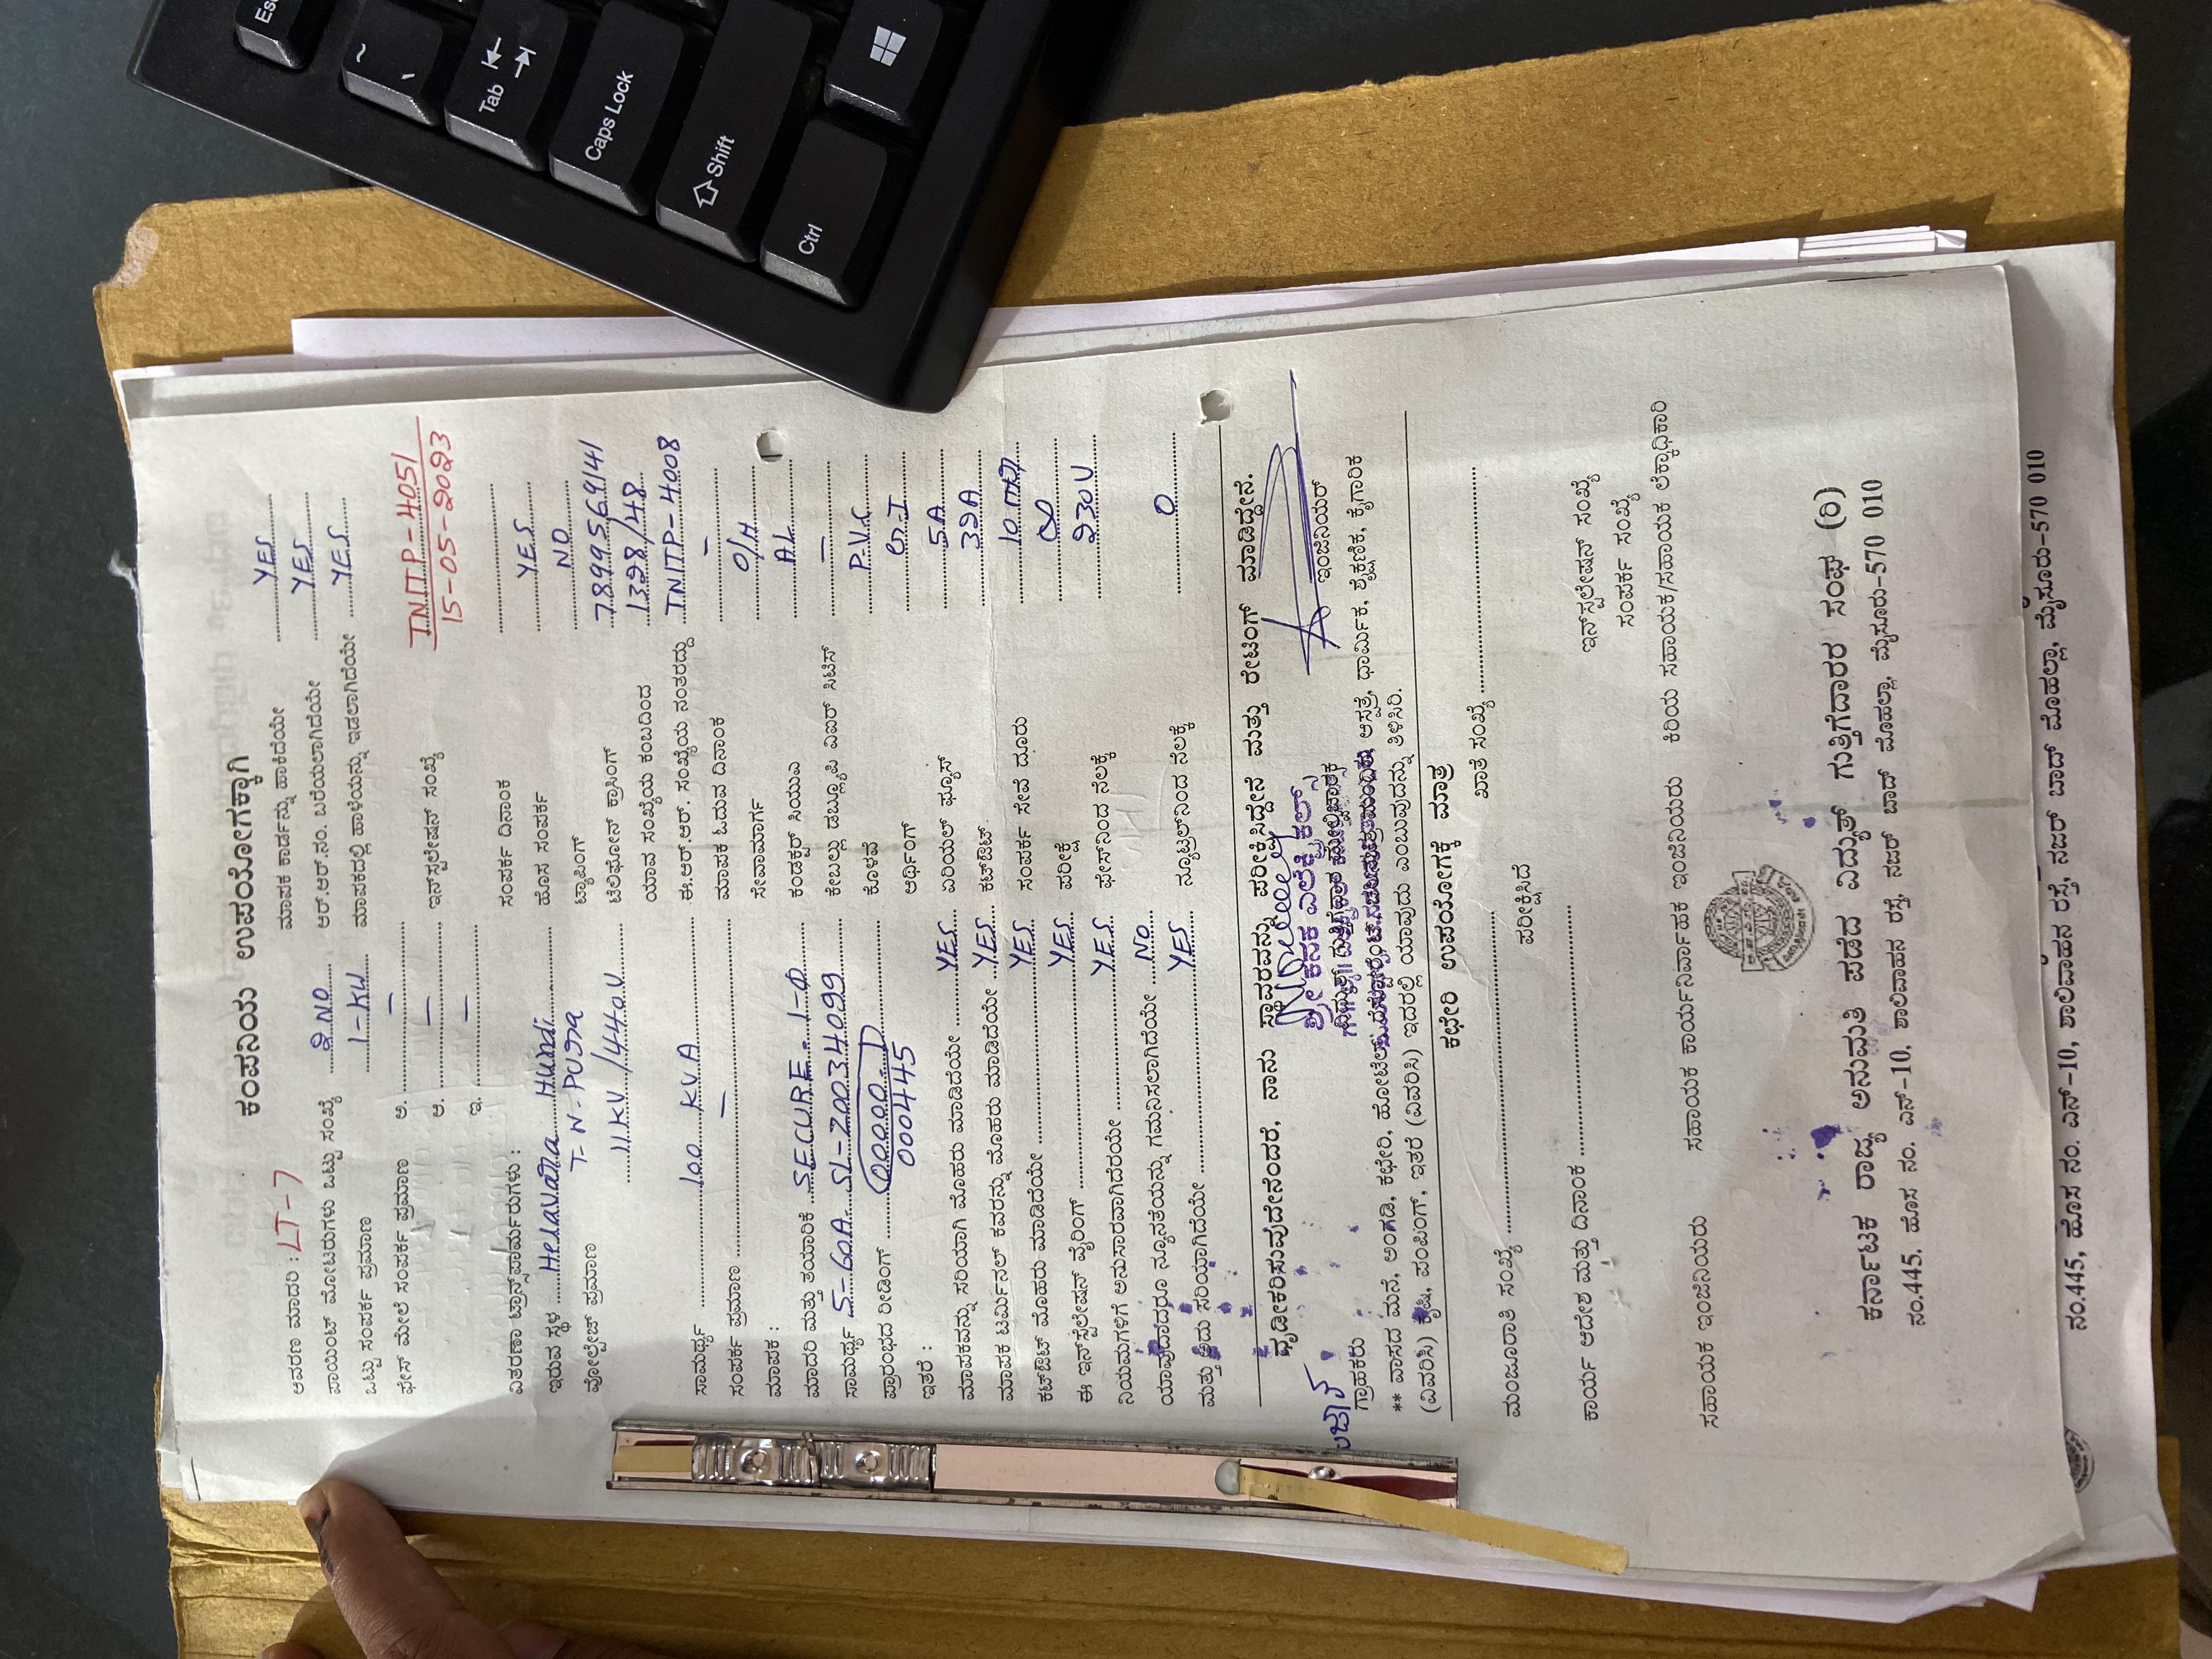 Esc
~
Tab
Caps Lock
Shift
Ctrl
ಕಂಪನಿಯ ಉಪಯೋಗಕ್ಕಾಗಿ
ಆವರಣ ಮಾದರಿ : LT-7 ಮಾಪಕ ಕಾರ್ಡನ್ನು ಹಾಕಿದೆಯೇ YES
ಪಾಯಿಂಟ್ ಮೋಟರುಗಳು ಒಟ್ಟು ಸಂಖ್ಯೆ 2 NO ಆರ್.ಆರ್.ನಂ. ಬರೆಯಲಾಗಿದೆಯೇ YES
ಒಟ್ಟು ಸಂಪರ್ಕ ಪ್ರಮಾಣ 1-KW ಮಾಪಕದಲ್ಲಿ ಹಾಳೆಯನ್ನು ಇಡಲಾಗಿದೆಯೇ YES
ಫೇಸ್ ಮೇಲೆ ಸಂಪರ್ಕ ಪ್ರಮಾಣ ಅ. —
ಆ. — ಇನ್‌ಸ್ಟಲೇಷನ್ ಸಂಖ್ಯೆ TNITP-4051
ಇ. — 15-05-2023
ವಿತರಣಾ ಟ್ರಾನ್ಸ್‌ಫಾರ್ಮರುಗಳು : ಸಂಪರ್ಕ ದಿನಾಂಕ
ಇರುವ ಸ್ಥಳ Helavara Hundi ಹೊಸ ಸಂಪರ್ಕ YES
T-N-PURA ಟ್ಯಾಪಿಂಗ್ NO
ವೋಲ್ಟೇಜ್ ಪ್ರಮಾಣ 11KV/440V ಟೆಲಿಫೋನ್ ಕ್ರಾಸಿಂಗ್ 7899569141
ಯಾವ ಸಂಖ್ಯೆಯ ಕಂಬದಿಂದ 1328/48
ಈ.ಆರ್.ಆರ್. ಸಂಖ್ಯೆಯ ನಂತರದ್ದು TNITP-4008
ಸಾಮರ್ಥ್ಯ 100 KVA ಮಾಪಕ ಓದುವ ದಿನಾಂಕ —
ಸಂಪರ್ಕ ಪ್ರಮಾಣ — ಸೇವಾಮಾರ್ಗ O/H
ಮಾಪಕ : ಕಂಡಕ್ಟರ್ ಸಿಯುಎ AL
ಮಾದರಿ ಮತ್ತು ತಯಾರಿಕೆ SECURE 1-Φ ಕೇಬಲ್ಲು ಡಬ್ಲ್ಯೂಪಿ ಎಐರ್ ಸಿಟಿಸ್ —
ಸಾಮರ್ಥ್ಯ 5-60A SL-20034099 ಕೊಳವೆ P.V.C
ಪ್ರಾರಂಭದ ರೀಡಿಂಗ್ 00000.1 ಅರ್ಥಿಂಗ್ G.I
ಇತರೆ : 000445
ಮಾಪಕವನ್ನು ಸರಿಯಾಗಿ ಮೊಹರು ಮಾಡಿದೆಯೇ YES ಏರಿಯಲ್ ಫ್ಯೂಸ್ 5A
ಮಾಪಕ ಟರ್ಮಿನಲ್ ಕವರನ್ನು ಮೊಹರು ಮಾಡಿದೆಯೇ YES ಕಟ್‌ಔಟ್ 32A
ಕಟ್‌ಔಟ್ ಮೊಹರು ಮಾಡಿದೆಯೇ YES ಸಂಪರ್ಕ ಸೇವೆ ದೂರು 10 mtr
ಈ ಇನ್‌ಸ್ಟಲೇಷನ್ ವೈರಿಂಗ್ YES ಪರೀಕ್ಷೆ ∞
ನಿಯಮಗಳಿಗೆ ಅನುಸಾರವಾಗಿದೆಯೇ YES ಫೇಸ್‌ನಿಂದ ನೆಲಕ್ಕೆ 230V
ಯಾವುದಾದರೂ ನ್ಯೂನತೆಯನ್ನು ಗಮನಿಸಲಾಗಿದೆಯೇ NO
ಮತ್ತು ಅದು ಸರಿಯಾಗಿದೆಯೇ YES ನ್ಯೂಟ್ರಲ್‌ನಿಂದ ನೆಲಕ್ಕೆ 0
ದೃಢೀಕರಿಸುವುದೇನೆಂದರೆ, ನಾನು ಸ್ಥಾವರವನ್ನು ಪರೀಕ್ಷಿಸಿದ್ದೇನೆ ಮತ್ತು ರೇಟಿಂಗ್ ಮಾಡಿದ್ದೇನೆ.
ಶ್ರೀ ಕನಕ ಎಲೆಕ್ಟ್ರಿಕಲ್ಸ್
ಗ್ರಾಹಕರು ಇಂಜಿನಿಯರ್
** ವಾಸದ ಮನೆ, ಅಂಗಡಿ, ಕಛೇರಿ, ಹೋಟೆಲ್, ಆಸ್ಪತ್ರೆ, ಧಾರ್ಮಿಕ, ಶೈಕ್ಷಣಿಕ, ಕೈಗಾರಿಕ
(ವಿವರಿಸಿ) ಕೃಷಿ, ಪಂಪಿಂಗ್, ಇತರೆ (ವಿವರಿಸಿ) ಇದರಲ್ಲಿ ಯಾವುದು ಎಂಬುವುದನ್ನು ತಿಳಿಸಿರಿ.
ಕಛೇರಿ ಉಪಯೋಗಕ್ಕೆ ಮಾತ್ರ
ಮಂಜೂರಾತಿ ಸಂಖ್ಯೆ ಖಾತೆ ಸಂಖ್ಯೆ
ಪರೀಕ್ಷಿಸಿದೆ
ಕಾರ್ಯ ಆದೇಶ ಮತ್ತು ದಿನಾಂಕ ಇನ್‌ಸ್ಟಲೇಷನ್ ಸಂಖ್ಯೆ
ಸಂಪರ್ಕ ಸಂಖ್ಯೆ
ಸಹಾಯಕ ಇಂಜಿನಿಯರು ಸಹಾಯಕ ಕಾರ್ಯನಿರ್ವಾಹಕ ಇಂಜಿನಿಯರು ಕಿರಿಯ ಸಹಾಯಕ/ಸಹಾಯಕ ಲೆಕ್ಕಾಧಿಕಾರಿ
ಕರ್ನಾಟಕ ರಾಜ್ಯ ಅನುಮತಿ ಪಡೆದ ವಿದ್ಯುತ್ ಗುತ್ತಿಗೆದಾರರ ಸಂಘ (ರಿ)
ನಂ.445, ಹೊಸ ನಂ. ಎನ್-10, ಶಾಲಿವಾಹನ ರಸ್ತೆ, ನಜರ್ ಬಾದ್ ಮೊಹಲ್ಲಾ, ಮೈಸೂರು-570 010
ನಂ.445, ಹೊಸ ನಂ. ಎನ್-10, ಶಾಲಿವಾಹನ ರಸ್ತೆ, ನಜರ್ ಬಾದ್ ಮೊಹಲ್ಲಾ, ಮೈಸೂರು-570 010